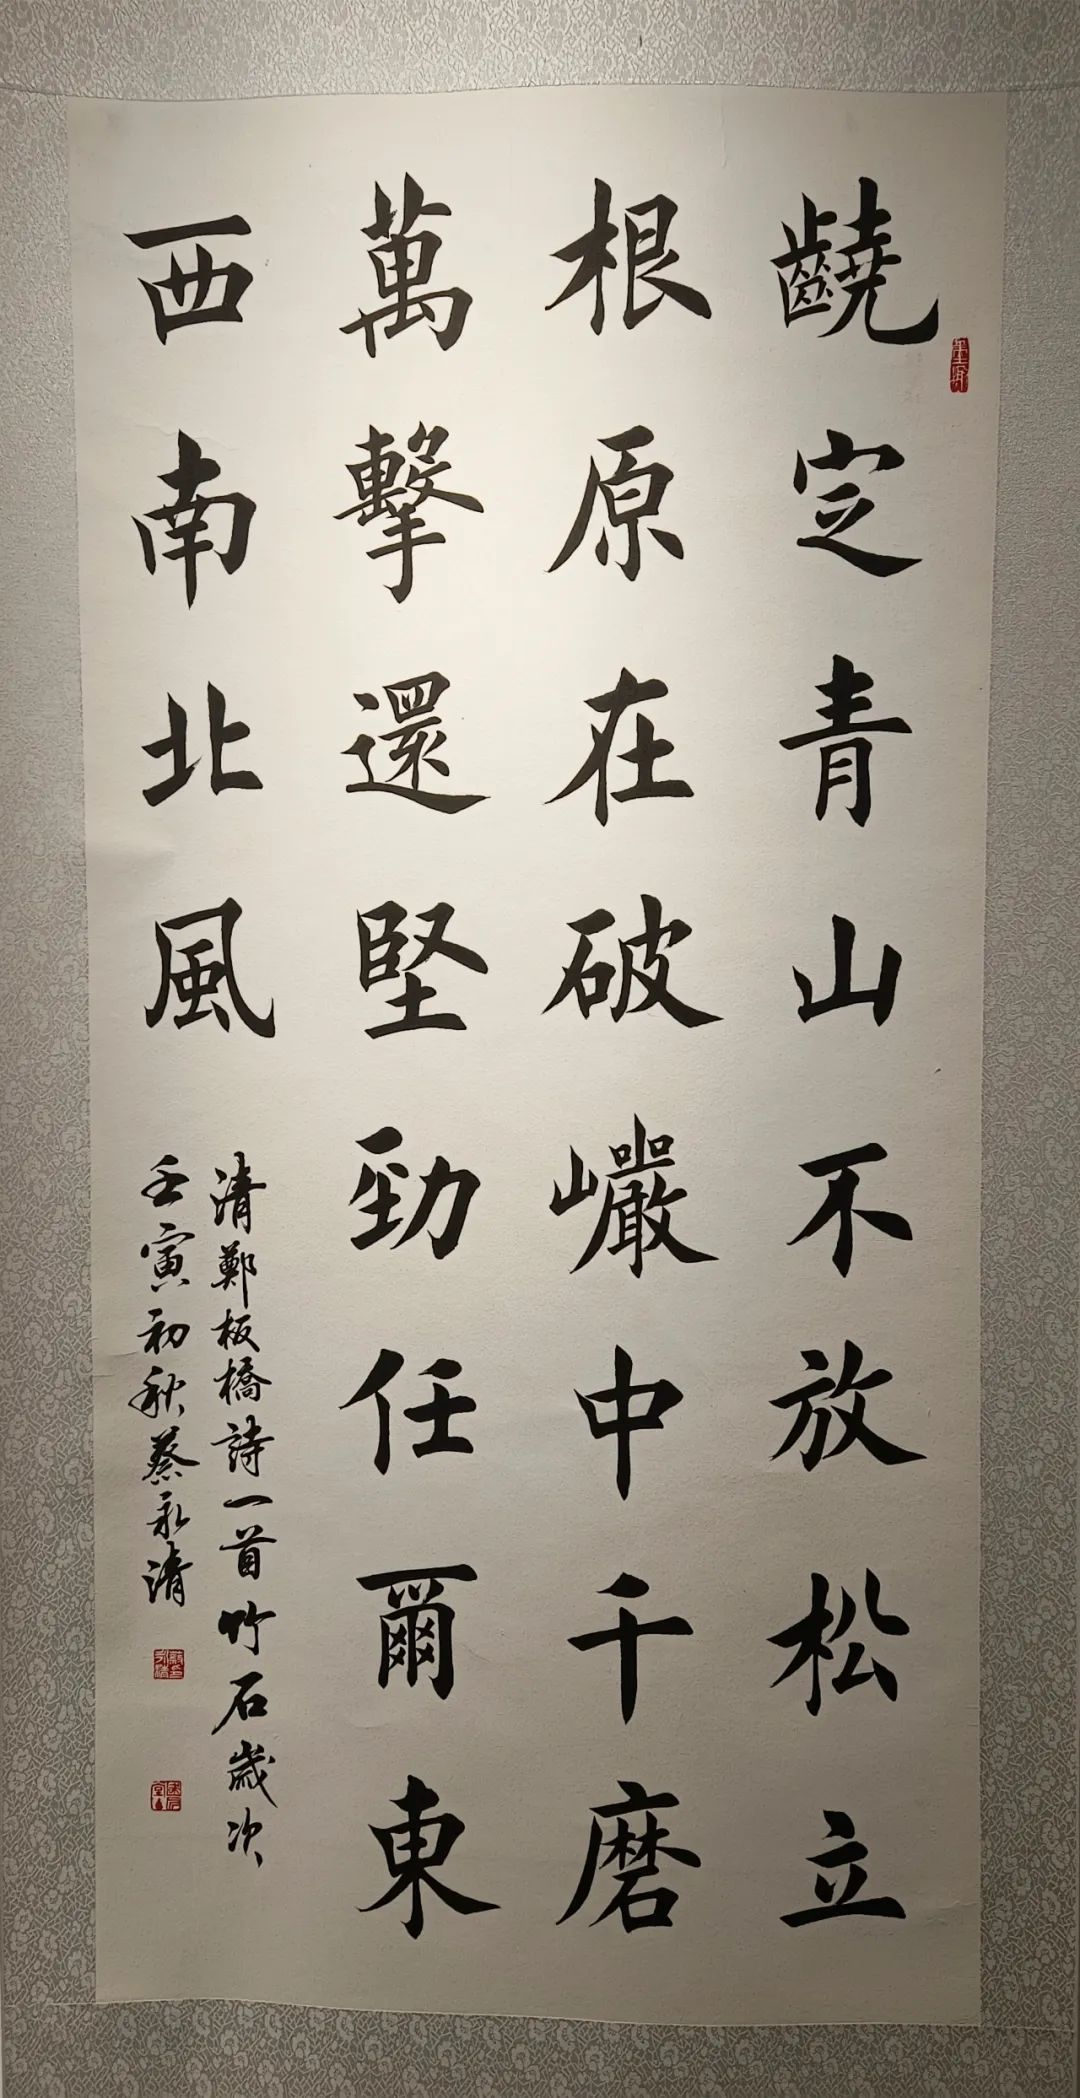 䶧定青山不放松立
根原在破巗中千磨
萬擊還堅勁任爾東
西南北風
清鄭板橋詩一首竹石歲次
壬寅初秋蔡永清